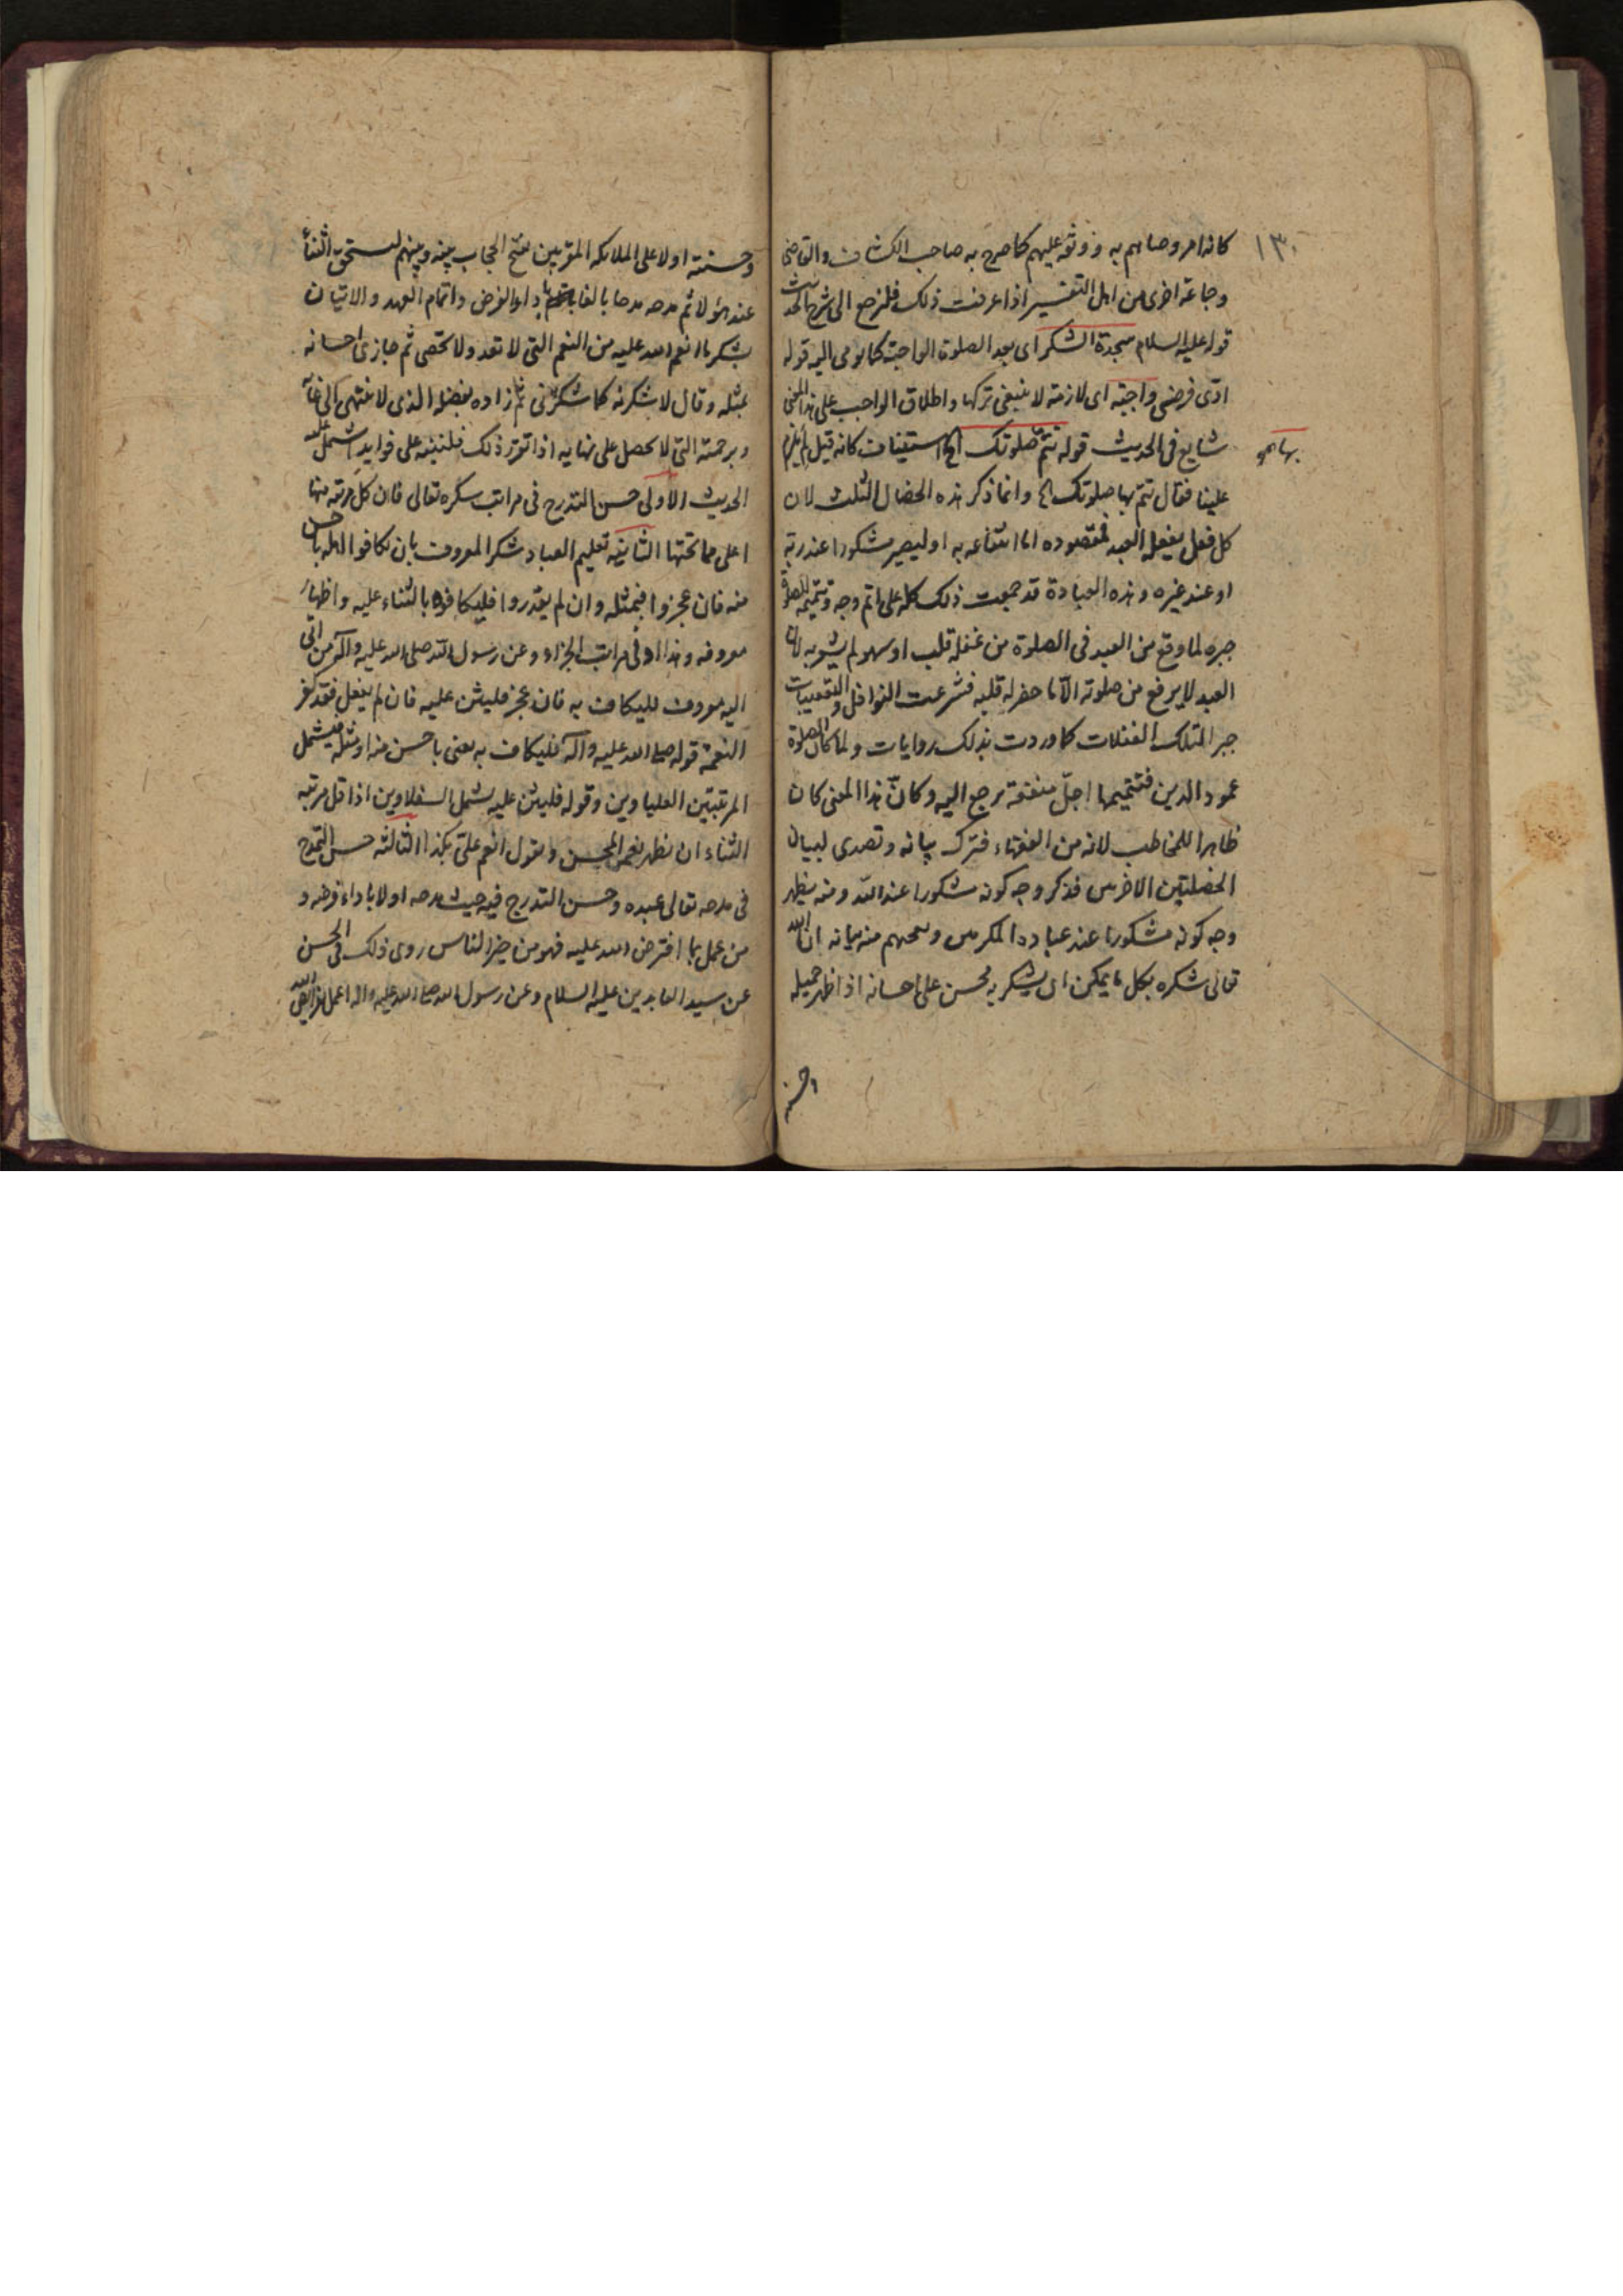 ١٣٠
كانه امر وصاهم به وزوثه عليهم كما صرح به صاحب الكشاف والقاضى
وجماعة اخرى من اهل التفسير اذا عرفت ذلك فلنرجع الى شرح الحديث
قوله عليه السلام سجدة الشكر اى بعد الصلوة الواجبة كما يومى اليه قوله
ادّى فرضى واجبة اى لازمة لا ينبغى تركها واطلاق الواجب على هذا المعنى
شايع فى الحديث قوله تتمّ صلوتك الخ استيناف كانه قيل لم يلزم
علينا فقال تتم بها صلوتك الخ وانما ذكر هذه الخصال الثلث لان
كل فعل يفعله العبد فمقصوده اما انتفاعه به او ليصير مشكورا عند ربّه
او عند غيره وهذه العبادة قد جمعت ذلك كله على اتم وجه وتتميمه للصلوة
جبره لما وقع من العبد فى الصلوة من غفلة قلب او سهو لم يشوبه لان
العبد لا يرفع من صلوته الّا ما حضر له قلبه فشرعت النوافل والتعقيبات
جبرا لتلك الغفلات كما وردت بذلك روايات ولما كان الصلوة
عمود الدين فتتميمها اجلّ منفعة يرجع اليه وكانّ هذا المعنى كان
ظاهرا للمخاطب لانه من الفقهاء فترك بيانه وتصدى لبيان
الخصلتين الاخرس فذكر وجه كونه مشكورا عند اللّه ومنه يظهر
وجه كونه مشكورا عند عباده المكرمين بيانه ان اللّه
تعالى شكره بكل ما يمكن اى يشكر به محسن على احسانه اذ اظهر جميله
وحسنته
وحسنته اولا على الملائكه المقربين بفتح الحجاب بينه وبينهم ليستحق الثناء
عند هؤلاء ثم مدحه مدحا بالغا باداء الفرض واتمام العهد والاتيان
بشكر ما انعم الله عليه من النعم التى لا تعد ولا تحصى ثم جازى احسانه
بمثله وقال لاشكرنه كما شكرنى ثم زاده بفضله الذى لا ينتهى الى غاية
وبرحمته التى لا يحصل على نهايه اذا تقرر ذلك فلننبّه على فوايد اشتمل عليه
الحديث الاولى حسن التدرج فى مراتب شكره تعالى فان كل مرتبه منها
اعلى مما تحتها الثانيه تعليم العباد شكر المعروف بان يكافوا اهله باحسن
منه فان عجزوا فبمثله وان لم يقدروا فليكافوه بالثناء عليه واظهار
معروفه وهذا ادنى مراتب الجزاء وعن رسول اللّه صلى الله عليه وآله من اتى
اليه معروف فليكاف به فان عجز فليثن عليه فان لم يفعل فقد كفر
النعمة قوله صلى الله عليه وآله فليكاف به يعنى باحسن منه او مثله فيشمل
المرتبتين العلياوين وقوله فليثن عليه يشمل السفلاوين اذ اقل مرتبه
الثناء ان يظهر نعم المحسن ويقول انعم علىّ بكذا الثالثه حسن التمدح
فى مدحه تعالى عبده وحسن التدرج فيه حيث مدحه اولا باداء فرضه و
من عمل بما افترض الله عليه فهو من خير الناس روى ذلك فى الحسن
عن سيد العابدين عليه السلام وعن رسول الله صلى الله عليه واله اعمل بفرايض الله